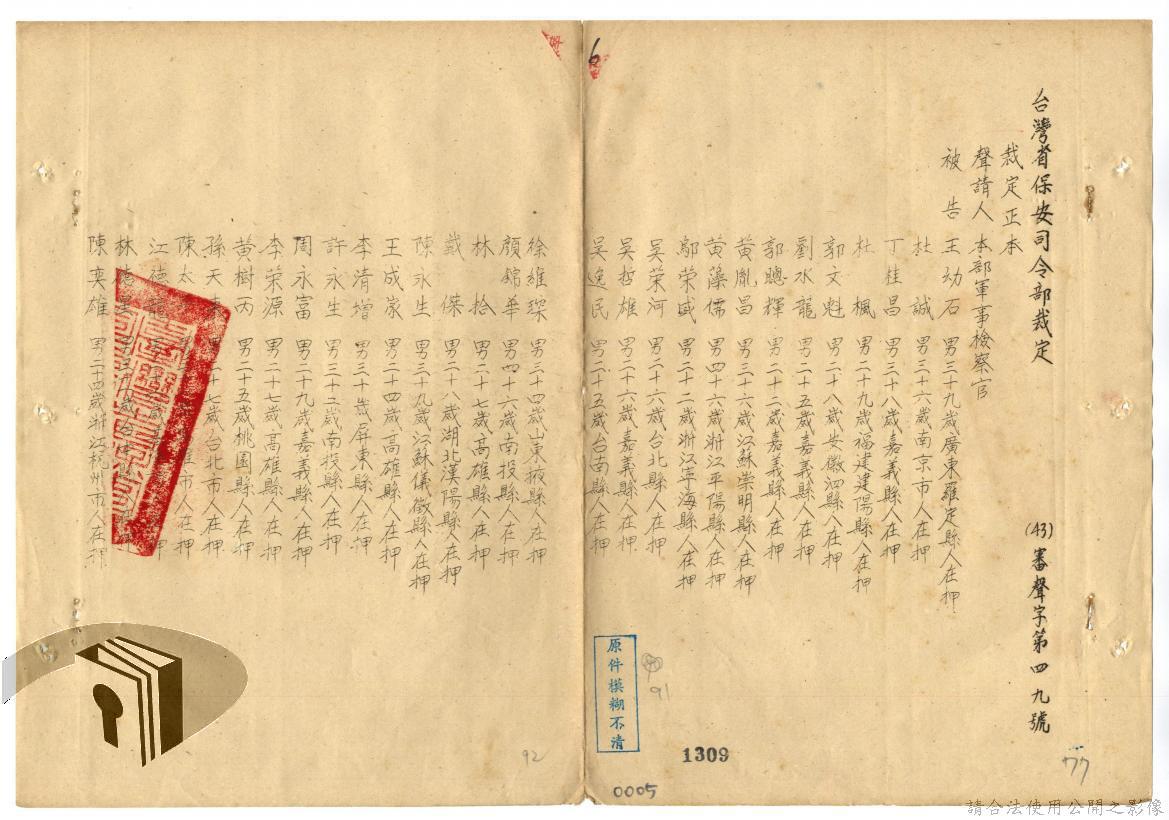 台灣省保安司令部裁定
(43)審聲字第四九號
裁定正本
聲請人 本部軍事檢察官
被告 王幼石 男三十九歲廣東羅定縣人在押
杜誠 男三十六歲南京市人在押
丁桂昌 男三十八歲嘉義縣人在押
杜楓 男二十九歲福建建陽縣人在押
郭文魁 男二十八歲安徽泗縣人在押
劉水龍 男二十五歲嘉義縣人在押
郭聰輝 男二十二歲嘉義縣人在押
黃胤昌 男三十六歲江蘇崇明縣人在押
黃藻儒 男四十六歲浙江平陽縣人在押
鄔榮盛 男二十二歲浙江寧海縣人在押
吳榮河 男二十六歲台北縣人在押
吳哲雄 男二十六歲嘉義縣人在押
吳逸民 男二十五歲台南縣人在押
徐維琛 男三十四歲山東掖縣人在押
顏錦華 男四十六歲南投縣人在押
林拾 男二十七歲高雄縣人在押
戴傑 男二十八歲湖北漢陽縣人在押
陳永生 男三十九歲江蘇儀徵縣人在押
王成家 男二十四歲高雄縣人在押
李清增 男三十歲屏東縣人在押
許永生 男三十二歲南投縣人在押
周永富 男二十九歲嘉義縣人在押
李榮源 男二十七歲高雄縣人在押
黃樹丙 男二十五歲桃園縣人在押
孫天 七歲台北市人在押
陳太 市人在押
江德龍 在押
林 男三十 歲台 人在押
陳奕雄 男二十四歲浙江杭州市人在押
6
原件模糊不清
91
92
1309
0005
77
請合法使用公開之影像